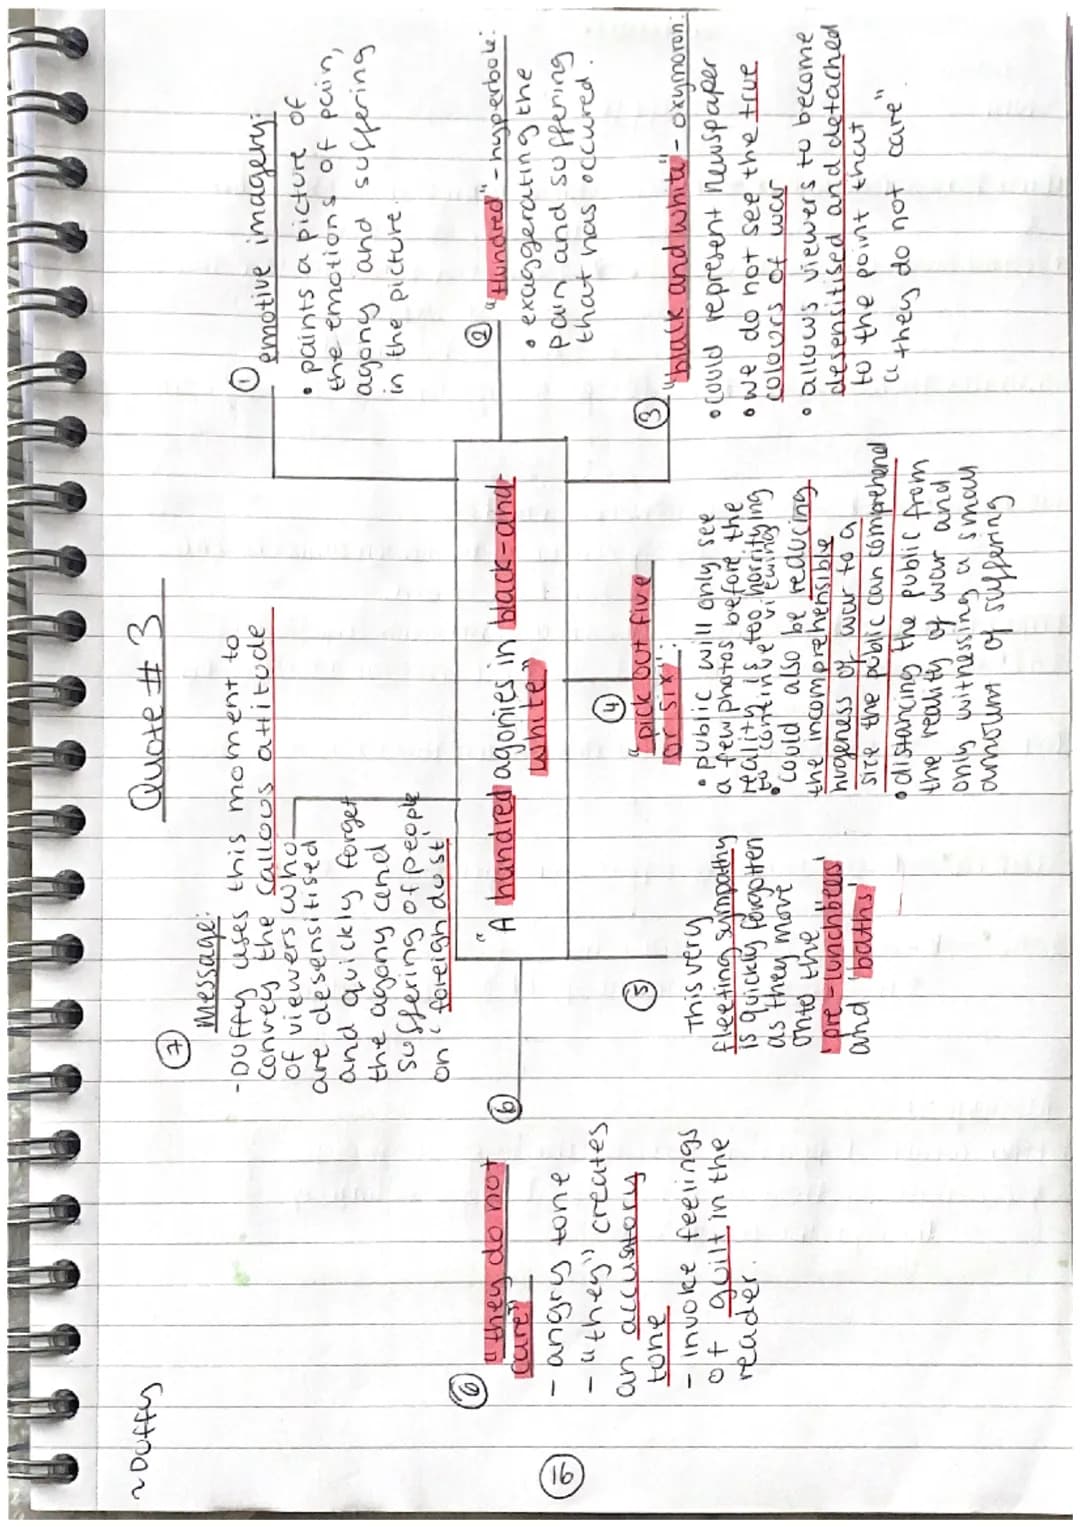 ~Duffy
Quote #3
⑦ Message:
-Duffy uses this moment to
convey the callous attitude
of viewers who
are desensitised
and quickly forget
the agony and
suffering of people
on 'foreign dust'.
① emotive imagery:
• paints a picture of
the emotions of pain,
agony and suffering
in the picture.
"A hundred agonies in black-and-
white"
② "Hundred" - hyperbole:
• exaggerating the
pain and suffering
that has occured.
③ "black and white" - oxymoron:
• could represent newspaper
• we do not see the true
colours of war
• allows viewers to become
desensitised and detached
to the point that
"they do not care"
④
"pick out five
or six":
• public will only see
a few photos before the
reality is too horrifying
to continue viewing
• could also be reducing
the incomprehensible
hugeness of war to a
size the public can comprehend
• distancing the public from
the reality of war and
only witnessing a small
amount of suffering
⑤
This very
fleeting sympathy
is quickly forgotten
as they move
onto the
'pre-lunchbeers'
and 'baths'
⑥
⑥ "they do not
care"
- angry tone
- "they" creates
an accusatory
tone
- invoke feelings
of guilt in the
reader.
16